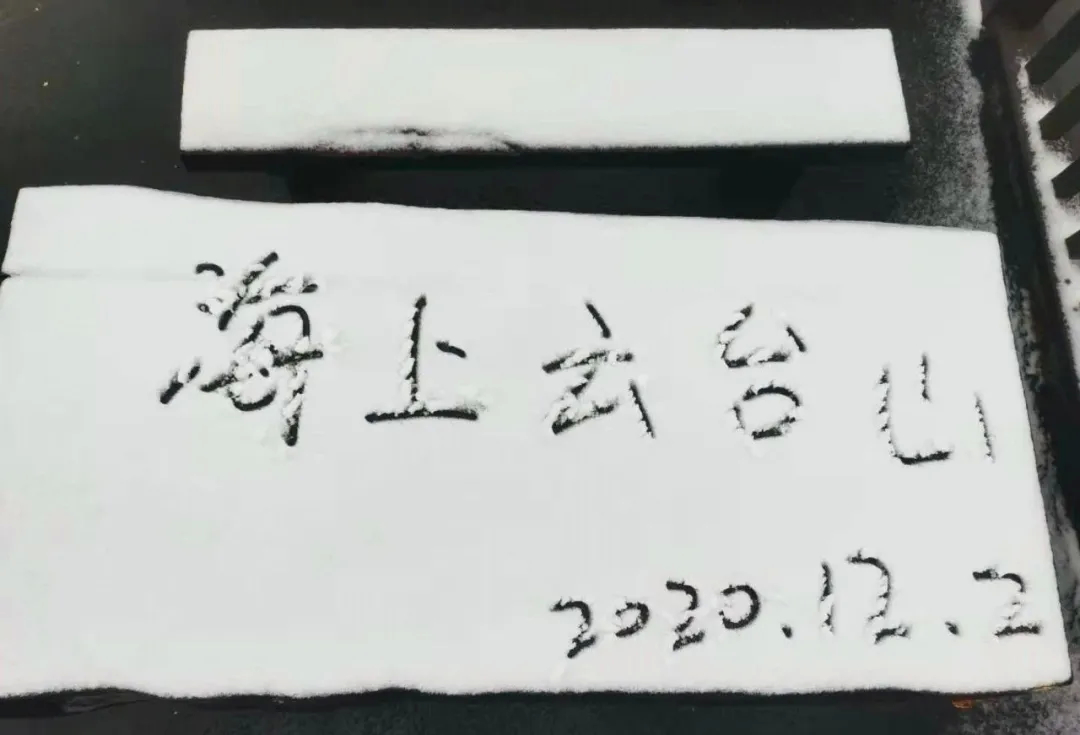 海上云台山
2020.12.2